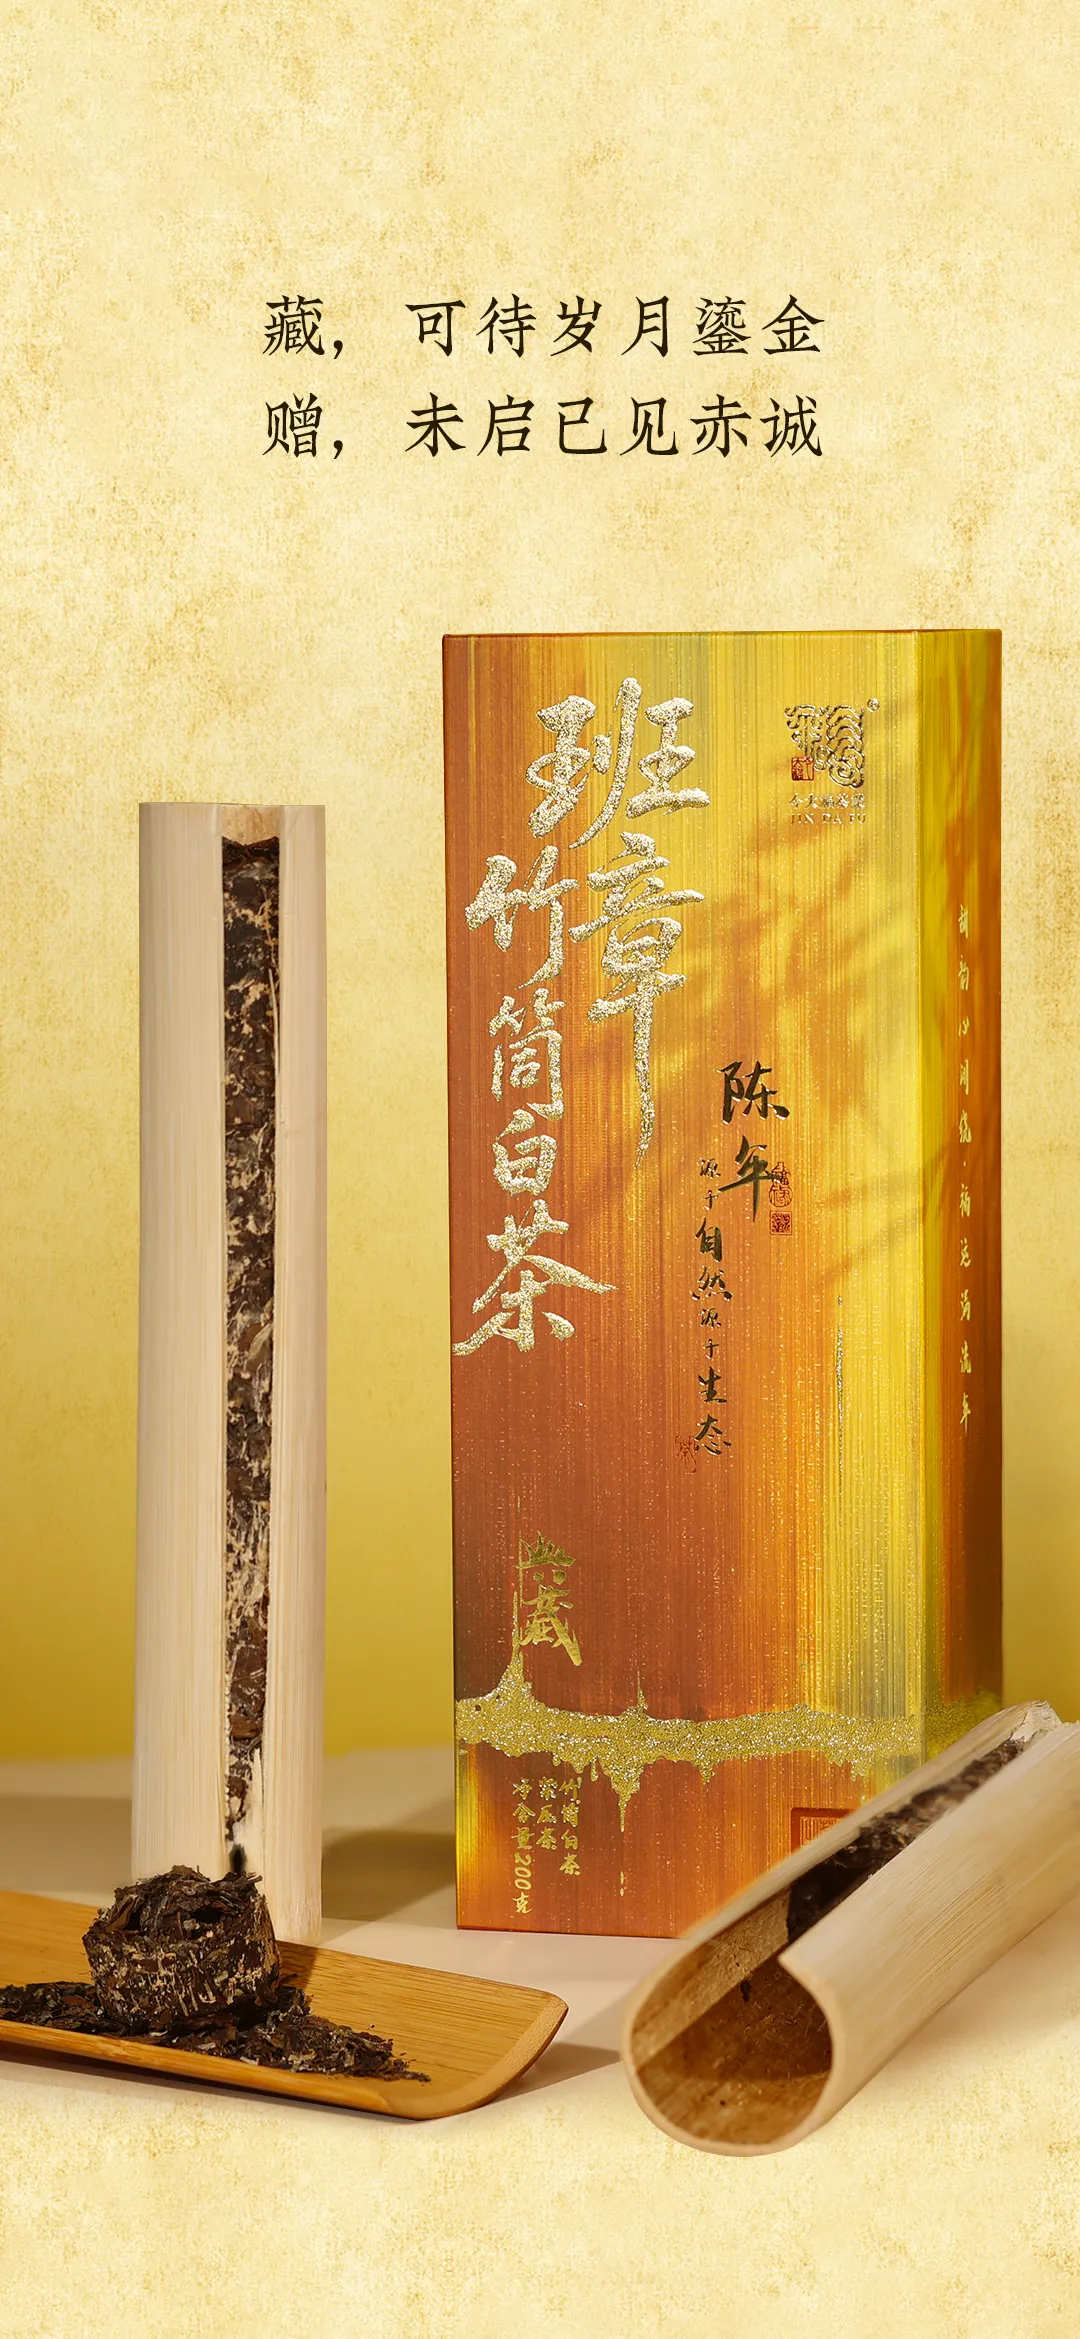 藏，可待岁月鎏金
赠，未启已见赤诚
班章
竹筒白茶
今大福茶业
JIN DA FU
陈年
源于自然源于生态
典藏
竹筒白茶
紧压茶
净含量200克